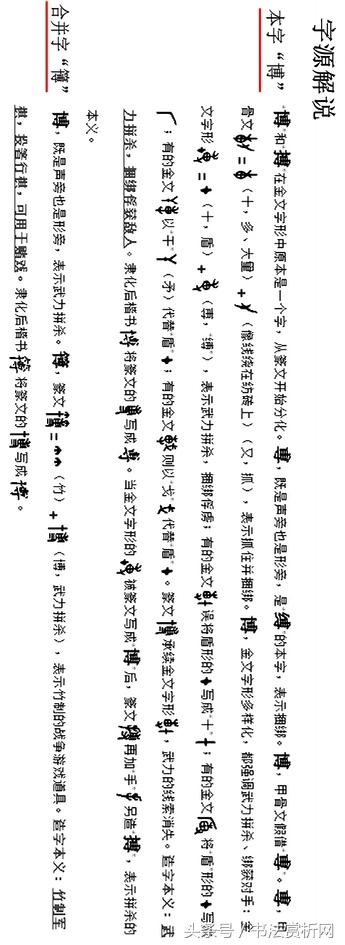 字源解说
本字“博”
“博”和“搏”在金文字形中原本是一个字，从篆文开始分化。尃，既是声旁也是形旁，是“缚”的本字，表示捆绑。博，甲骨文假借“尃”。尃，甲
骨文 = （十，多、大量）+ （像线绕在纺砖上）（又，抓），表示抓住并捆绑。博，金文字形多样化，都强调武力拼杀、绑获对手：金
文字形 = （十，盾）+ （尃，“缚”），表示武力拼杀，捆绑俘虏；有的金文 误将盾形的 写成“十”；有的金文 将“盾”形的 写成
；有的金文 以“干”（矛）代替“盾”；有的金文 则以“戈”代替“盾”。篆文 承续金文字形，武力的线索消失。造字本义：武
力拼杀，捆绑俘获敌人。隶化后楷书博将篆文的 写成尃。当金文字形的 被篆文写成“博”后，篆文 再加“手”另造“搏”，表示拼杀的
本义。
合并字“簙”
博，既是声旁也是形旁，表示武力拼杀。簙，篆文 = （竹）+ （博，武力拼杀），表示竹制的战争游戏道具。造字本义：竹制军
棋，投箸行棋，可用于赌戏。隶化后楷书簙将篆文的 写成博。
头条号／书法赏析网